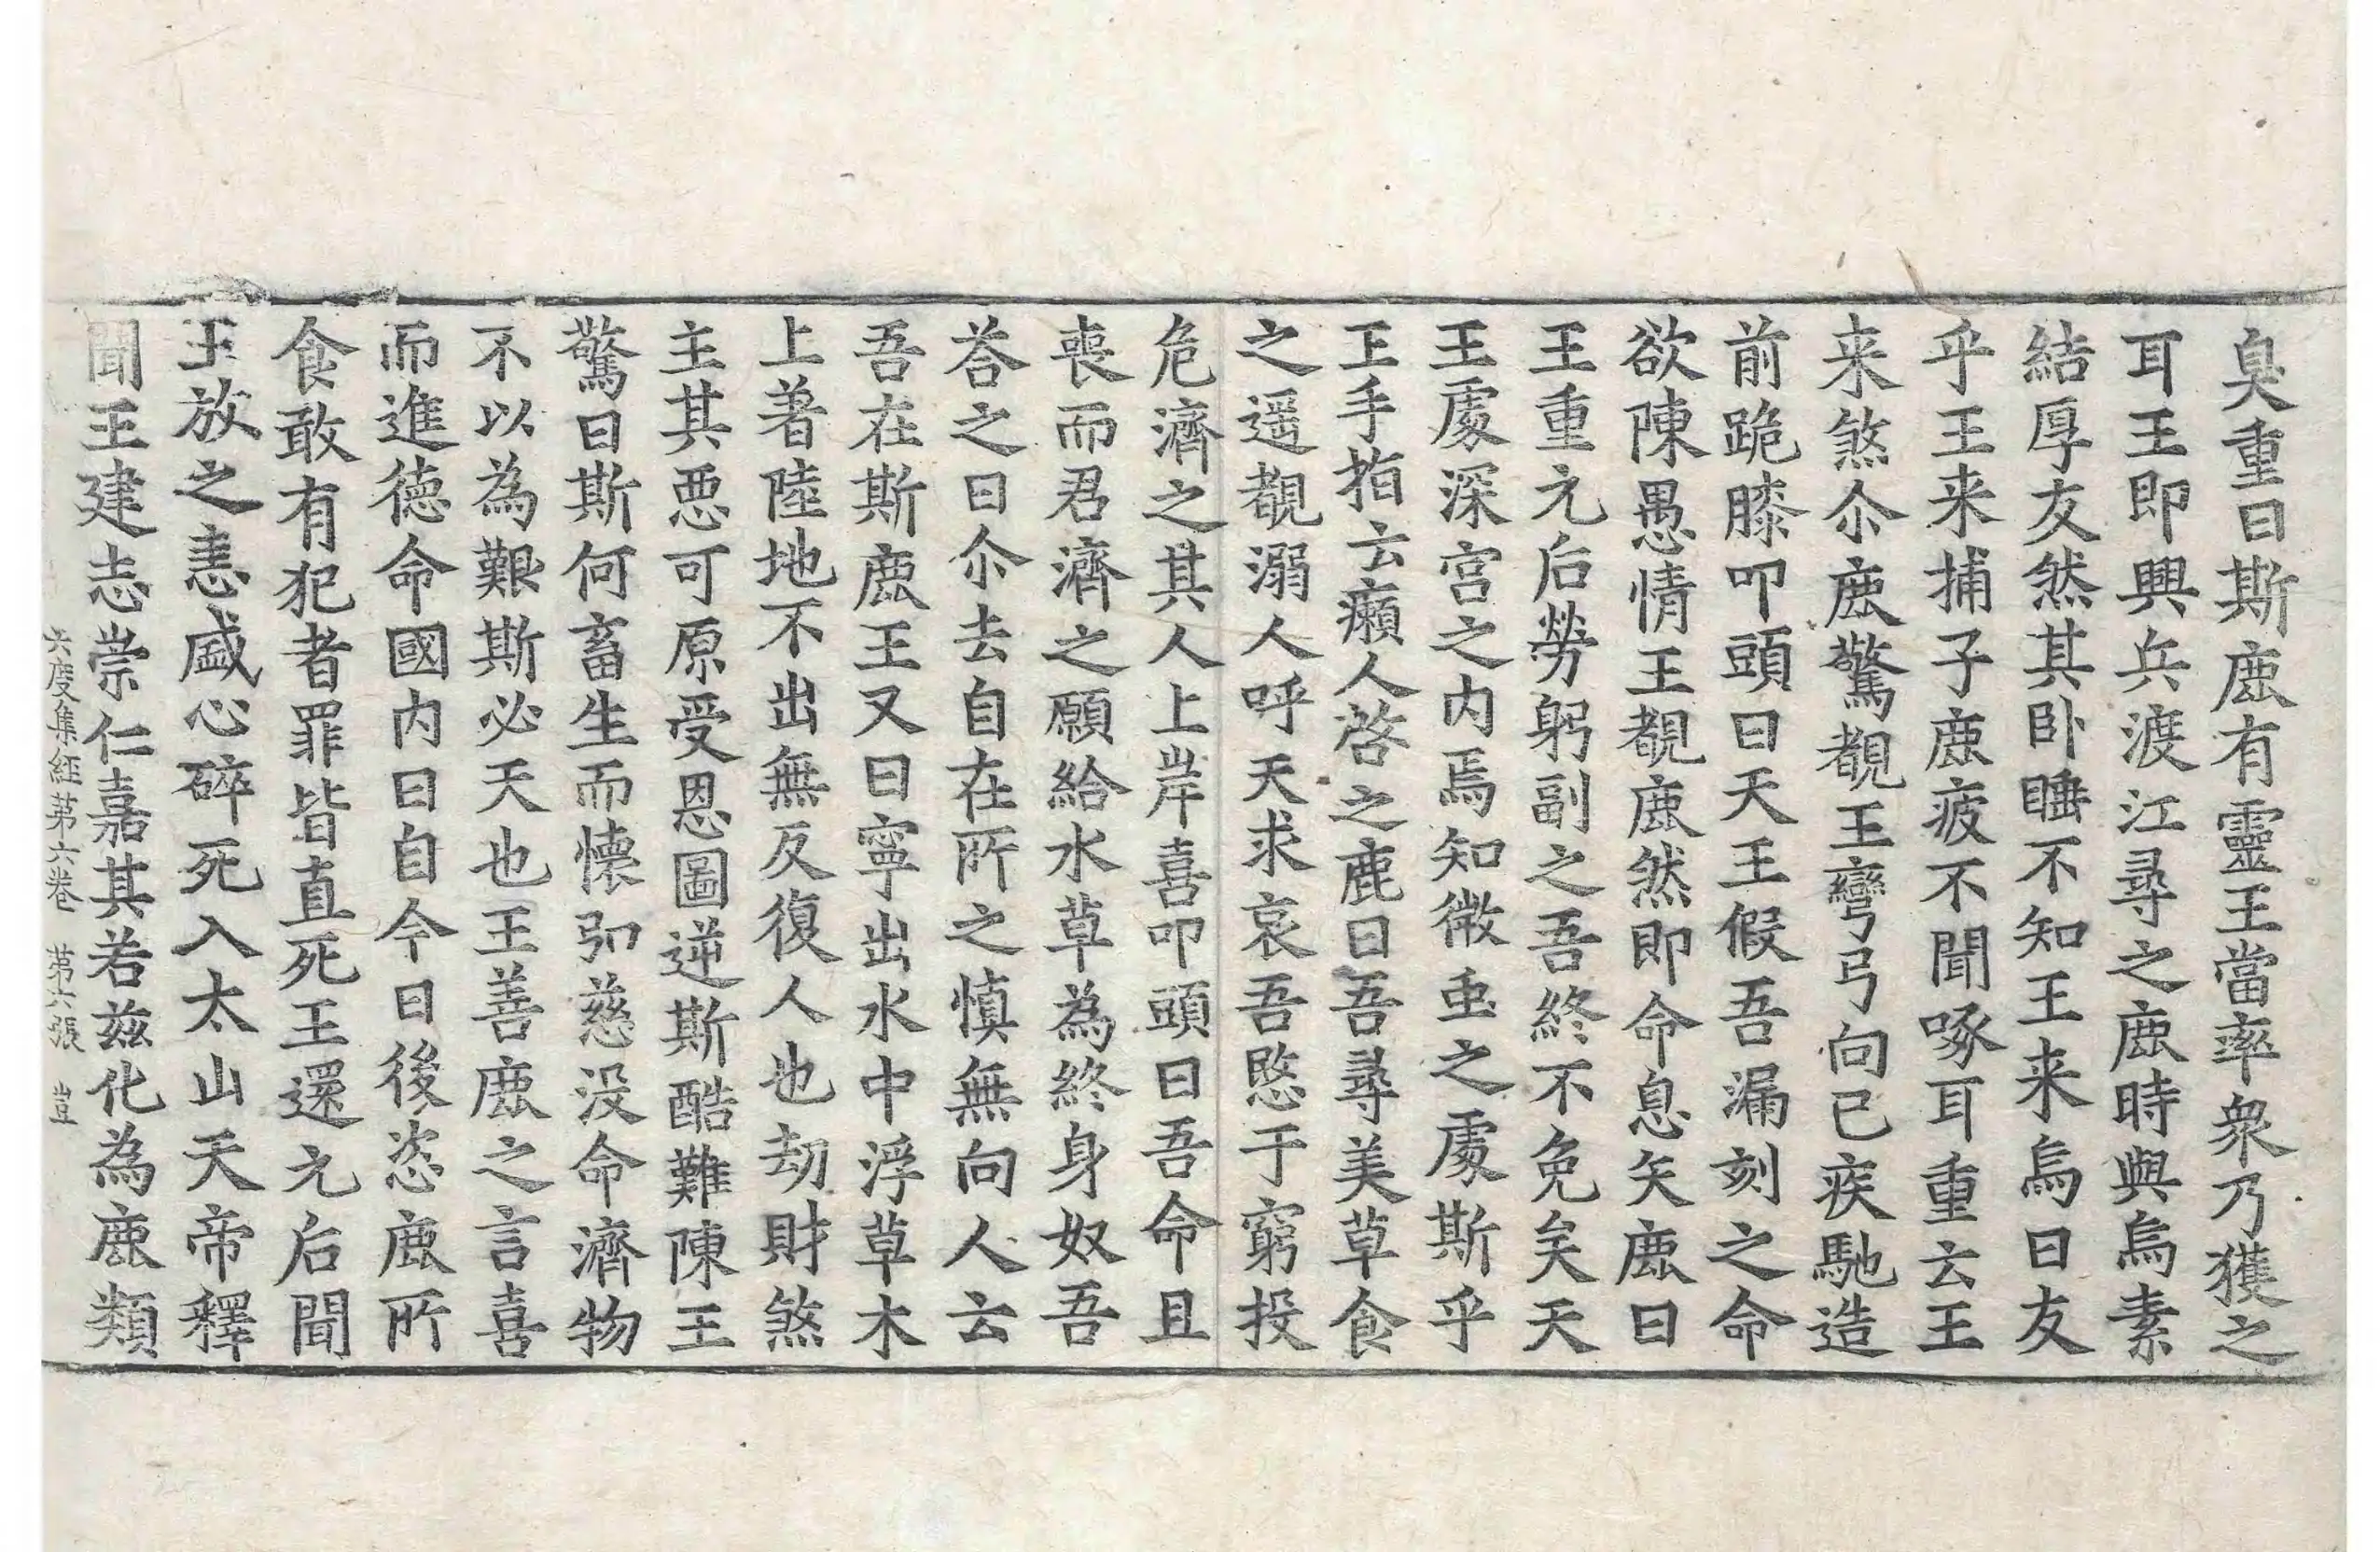 臭重曰斯鹿有靈王當率衆乃獲之
耳王即興兵渡江尋之鹿時與烏素
結厚友然其卧睡不知王来烏曰友
乎王来捕子鹿疲不聞啄耳重云王
来煞尒鹿驚覩王彎弓向己疾馳造
前跪膝叩頭曰天王假吾漏刻之命
欲陳愚情王覩鹿然即命息矢鹿曰
王重元后勞躬副之吾終不免矣天
王處深宮之内焉知微虫之處斯乎
王手指云癩人啓之鹿曰吾尋美草食
之遥覩溺人呼天求哀吾愍于窮投
危濟之其人上岸喜叩頭曰吾命且
喪而君濟之願給水草為終身奴吾
荅之曰尒去自在所之慎無向人云
吾在斯鹿王又曰寧出水中浮草木
上著陸地不出無反復人也劫財煞
主其惡可原受恩圖逆斯酷難陳王
驚曰斯何畜生而懷弘慈没命濟物
不以為艱斯必天也王善鹿之言喜
而進德命國内曰自今日後恣鹿所
食敢有犯者罪皆直死王還元后聞
王放之恚盛心碎死入太山天帝釋
聞王建志崇仁嘉其若兹化為鹿類
六度集經苐六卷 苐六張 豈